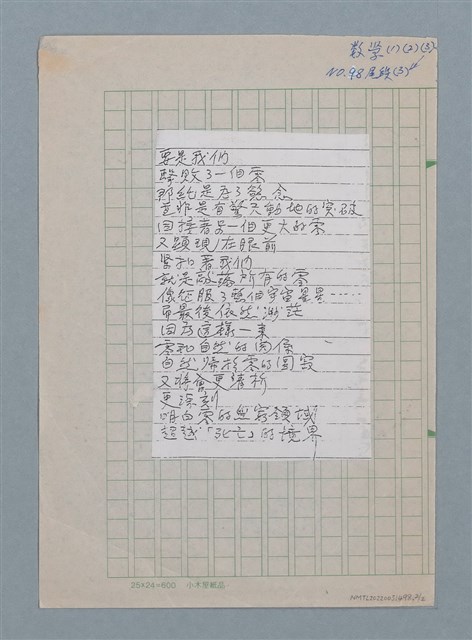 數學(1)(2)(3)
NO.98 尾錄(3)
要是我們
擊敗了一個零
那約是為了懸念
並非是有驚天動地的突破
因接着另一個更大的零
又顯現在眼前
緊扣著我們
就是敲落所有的零
像征服了整個宇宙星星……
而最後依然渺茫
因為這樣一來
零和自然的圖像
自然歸於零的圖寂
又將會更清析
更深刻
明白零的無窮領域
超越「死亡」的境界
25×24=600 小木屋紙品